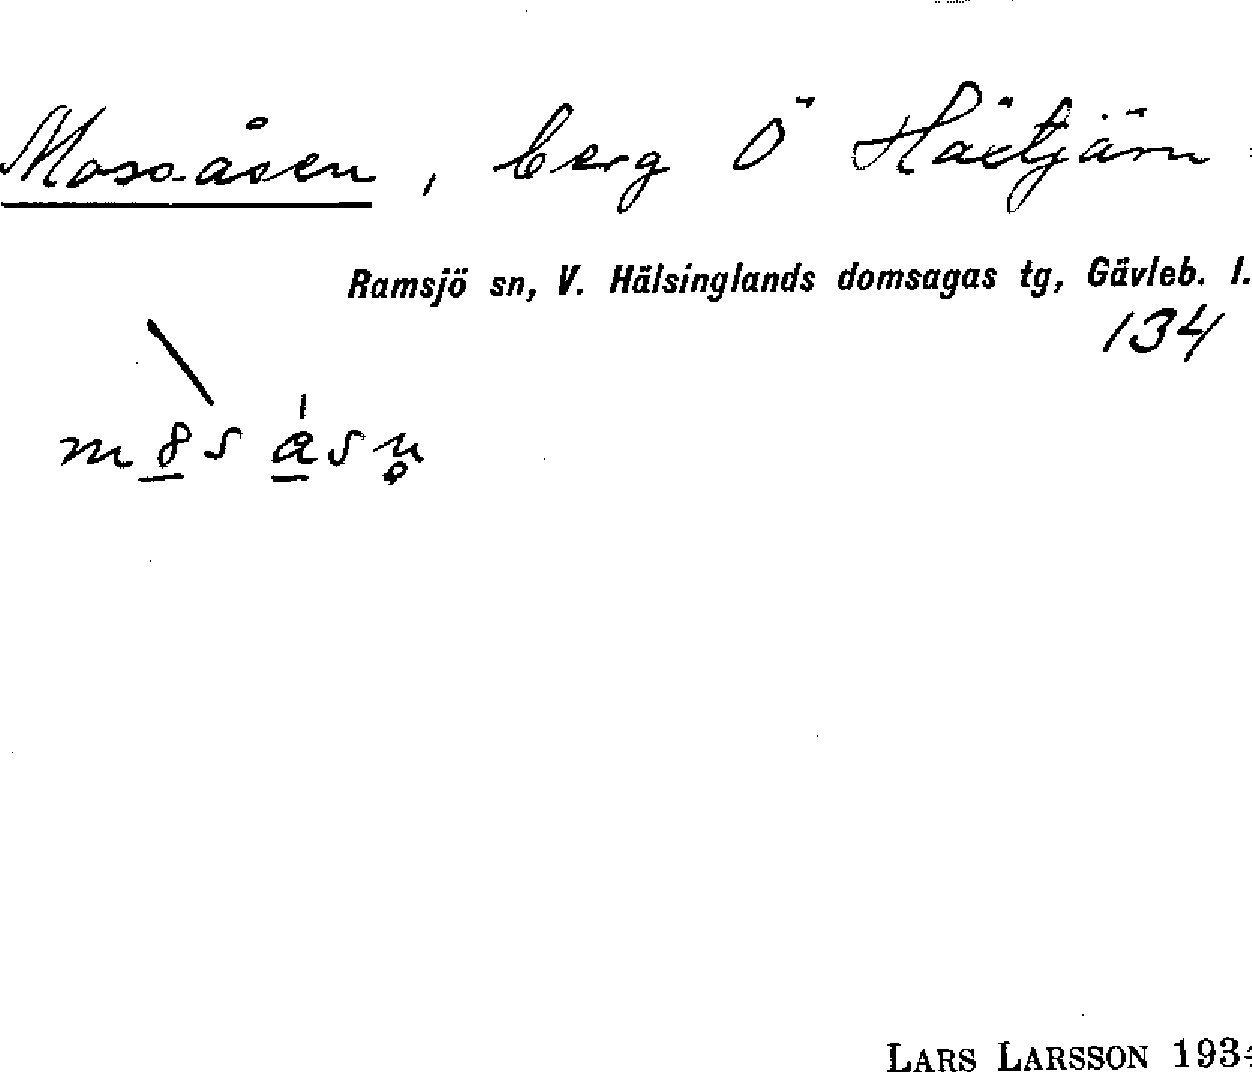 Mossåsen, berg Ö Hästjärn
Ramsjö sn, V. Hälsinglands domsagas tg, Gävleb. l.
134
LARS LARSSON 193